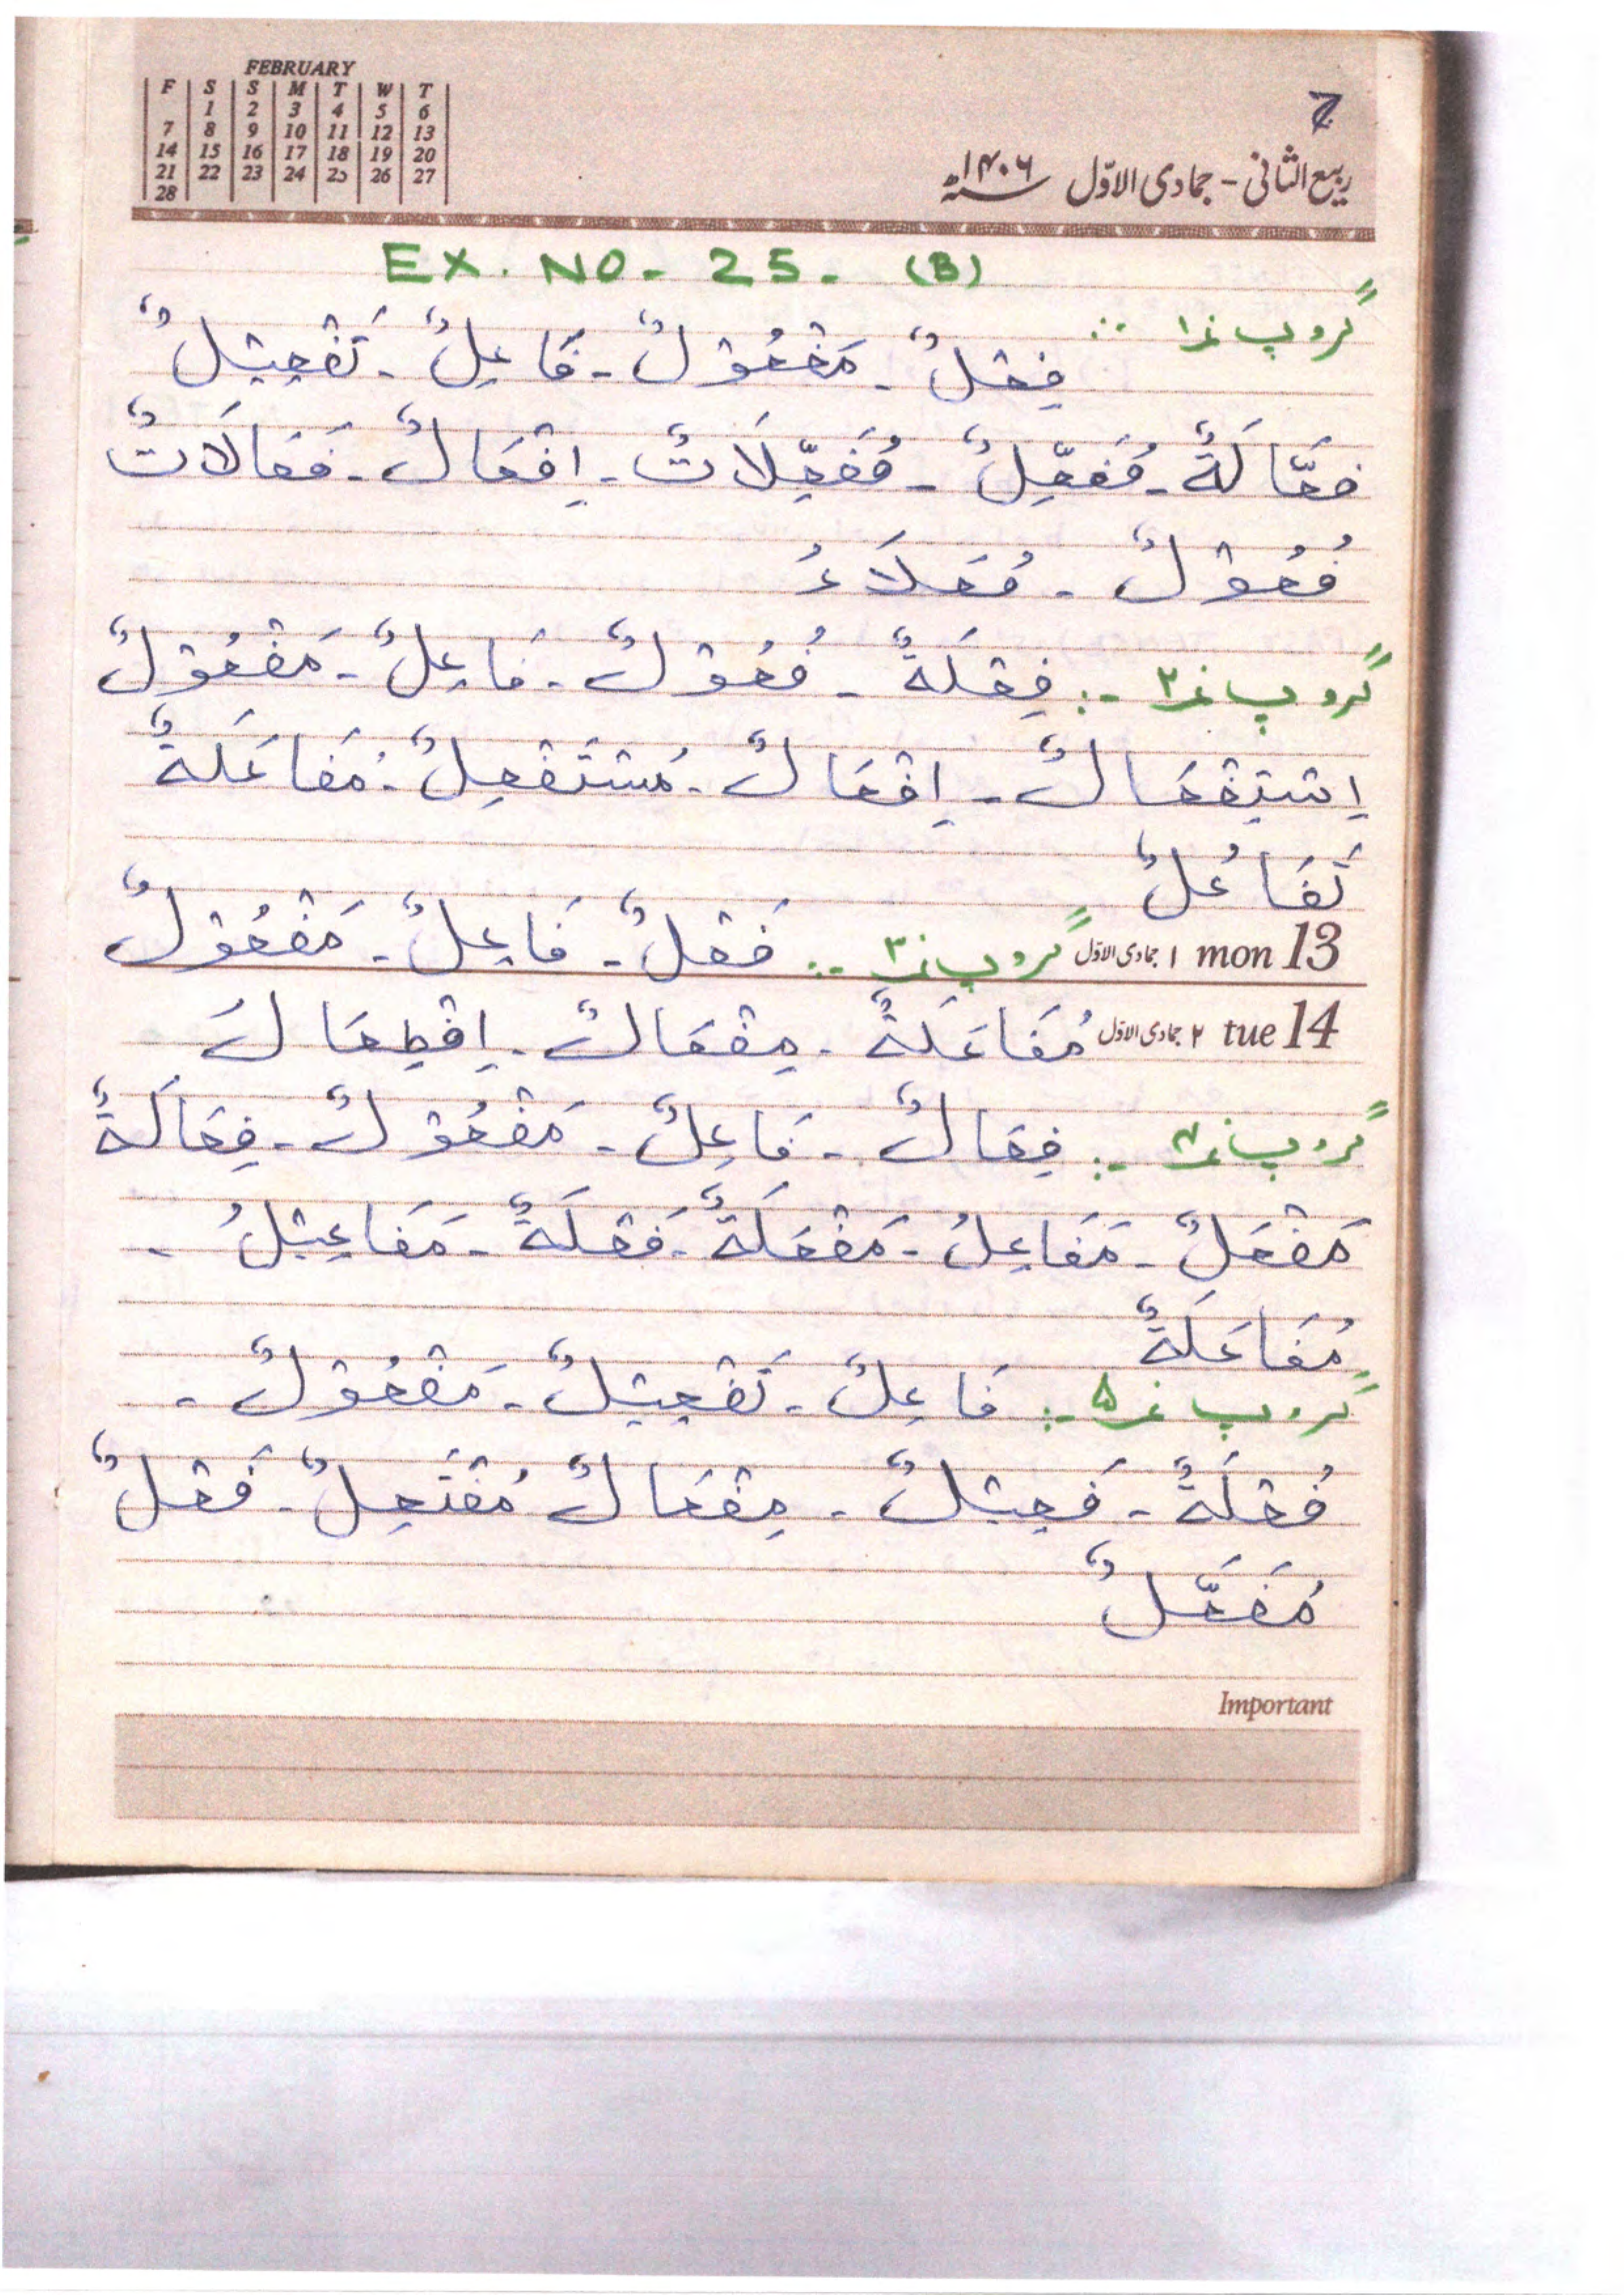 FEBRUARY
F S S M T W T
1 2 3 4 5 6
7 8 9 10 11 12 13
14 15 16 17 18 19 20
21 22 23 24 25 26 27
28
7
ربیع الثانی - جمادی الاوّل ۱۴۰۶ھ
EX. NO - 25 - (B)
گروپ نمبر ۱ :- فِعْلٌ - مَفْعُوْلٌ - فَاعِلٌ - تَفْعِيْلٌ
فعَّالَةٌ - مُفَعِّلٌ - مُفَعِّلَاتٌ - اِفْعَالٌ - فَعَالَاتٌ
فُعُوْلٌ - فُعَلَاءُ
گروپ نمبر ۲ :- فِعْلَةٌ - فُعُوْلٌ - فَاعِلٌ - مَفْعُوْلٌ
اِسْتِفْعَالٌ - اِفْعَالٌ - مُسْتَفْعِلٌ - مُفَاعَلَةٌ
تَفَاعُلٌ
mon 13 ۱ جمادی الاوّل گروپ نمبر ۳ :- فَعْلٌ - فَاعِلٌ - مَفْعُوْلٌ
tue 14 ۲ جمادی الاوّل مُفَاعَلَةٌ - مِفْعَالٌ - اِفْطِعَالٌ
گروپ نمبر ۴ :- فِعَالٌ - فَاعِلٌ - مَفْعُوْلٌ - فِعَالَةٌ
مَفْعَلٌ - مَفَاعِلُ - مَفْعَلَةٌ - فَعْلَةٌ - مَفَاعِيْلُ -
مُفَاعَلَةٌ
گروپ نمبر ۵ :- فَاعِلٌ - تَفْعِيْلٌ - مَفْعُوْلٌ -
فُعْلَةٌ - فَعِيْلٌ - مِفْعَالٌ مُفْتَعِلٌ - فَعْلٌ
مُفَعَّلٌ
Important